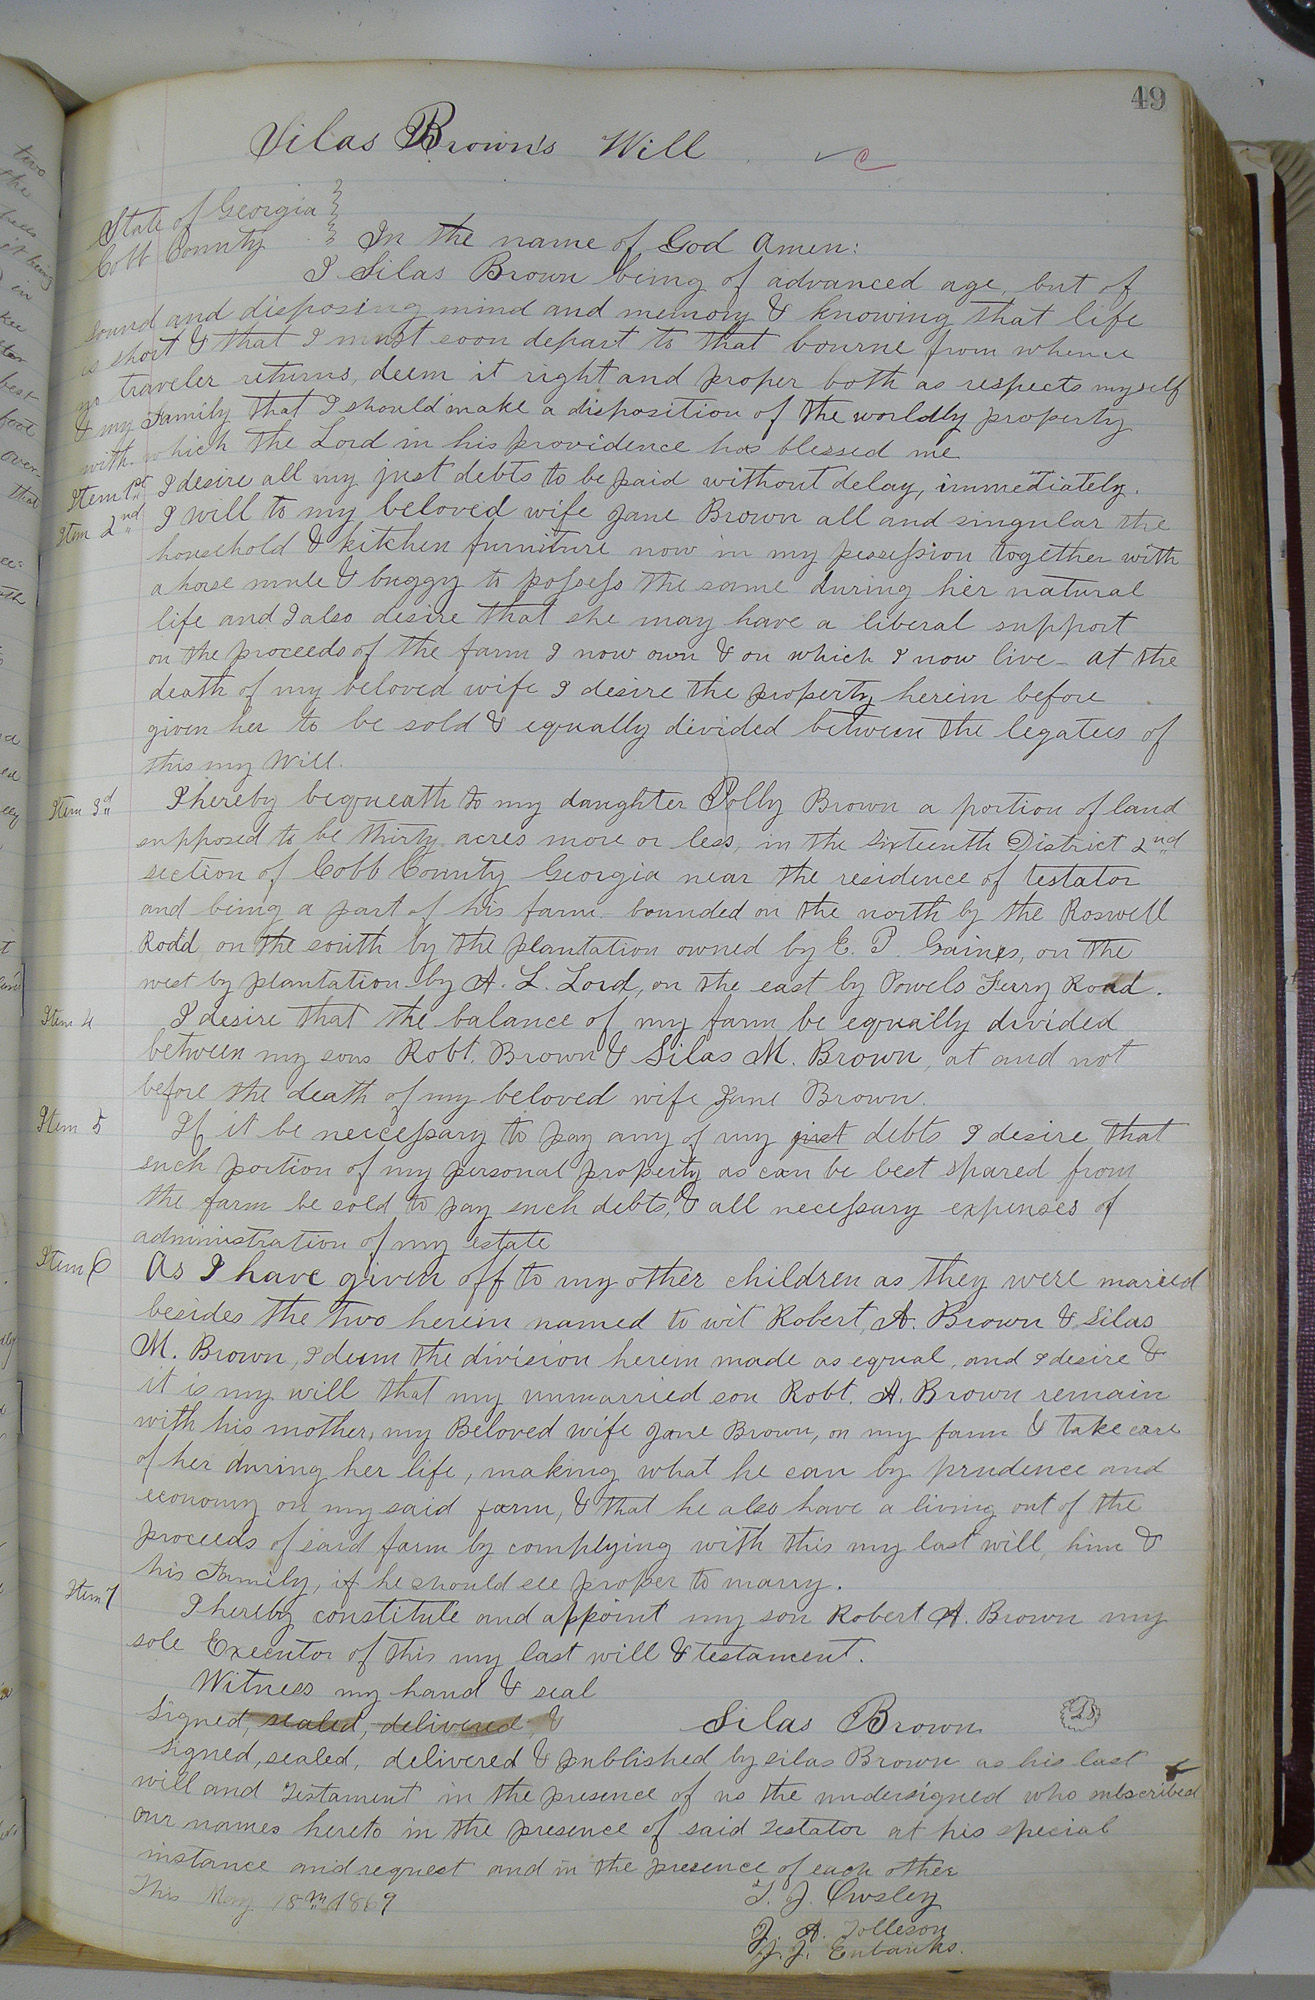 49
Silas Brown's Will
State of Georgia
Cobb County In the name of God Amen:
I Silas Brown being of advanced age, but of
sound and disposing mind and memory & knowing that life
is short & that I must soon depart to that bourne from whence
no traveler returns, deem it right and proper both as respects myself
& my Family that I should make a disposition of the worldly property
with which the Lord in his providence has blessed me
Item 1st I desire all my just debts to be paid without delay, immediately.
Item 2nd I will to my beloved wife Jane Brown all and singular the
household & kitchen furniture now in my possession together with
a horse mule & buggy to possess the same during her natural
life and I also desire that she may have a liberal support
on the proceeds of the farm I now own & on which I now live - at the
death of my beloved wife I desire the property herein before
given her to be sold & equally divided between the legatees of
this my Will.
Item 3d I hereby bequeath to my daughter Polly Brown a portion of land
supposed to be thirty acres more or less, in the Sixteenth District 2nd
section of Cobb County Georgia near the residence of testator
and being a part of his farm bounded on the north by the Roswell
Rodd, on the south by the plantation owned by E. P. Gaines, on the
west by plantation by A. L. Lord, on the east by Powels Ferry Road.
Item 4 I desire that the balance of my farm be equally divided
between my sons Robt. Brown & Silas M. Brown, at and not
before the death of my beloved wife Jane Brown.
Item 5 If it be neccessary to pay any of my just debts I desire that
such portion of my personal property as can be best spared from
the farm be sold to pay such debts, & all necessary expenses of
administration of my estate
Item 6 As I have given off to my other children as they were maried
besides the two herein named to wit Robert A. Brown & Silas
M. Brown, I deem the division herein made as equal, and I desire &
it is my will that my unmarried son Robt. A. Brown remain
with his mother, my Beloved wife Jane Brown, on my farm & take care
of her during her life, making what he can by prudence and
economy on my said farm, & that he also have a living out of the
proceeds of said farm by complying with this my last will, him &
his Family, if he should see proper to marry.
Item 7 I hereby constitute and appoint my son Robert A. Brown my
sole Executor of this my last will & testament.
Witness my hand & seal
Signed, sealed, delivered, & Silas Brown LS
Signed, sealed, delivered & published by Silas Brown as his last
will and Testament in the presence of us the undersigned who subscribed
our names hereto in the presence of said Testator at his special
instance and request and in the presence of each other
This May 18th 1869
T. J. Owsley
J. A. Tolleson
J. J. Eubanks.